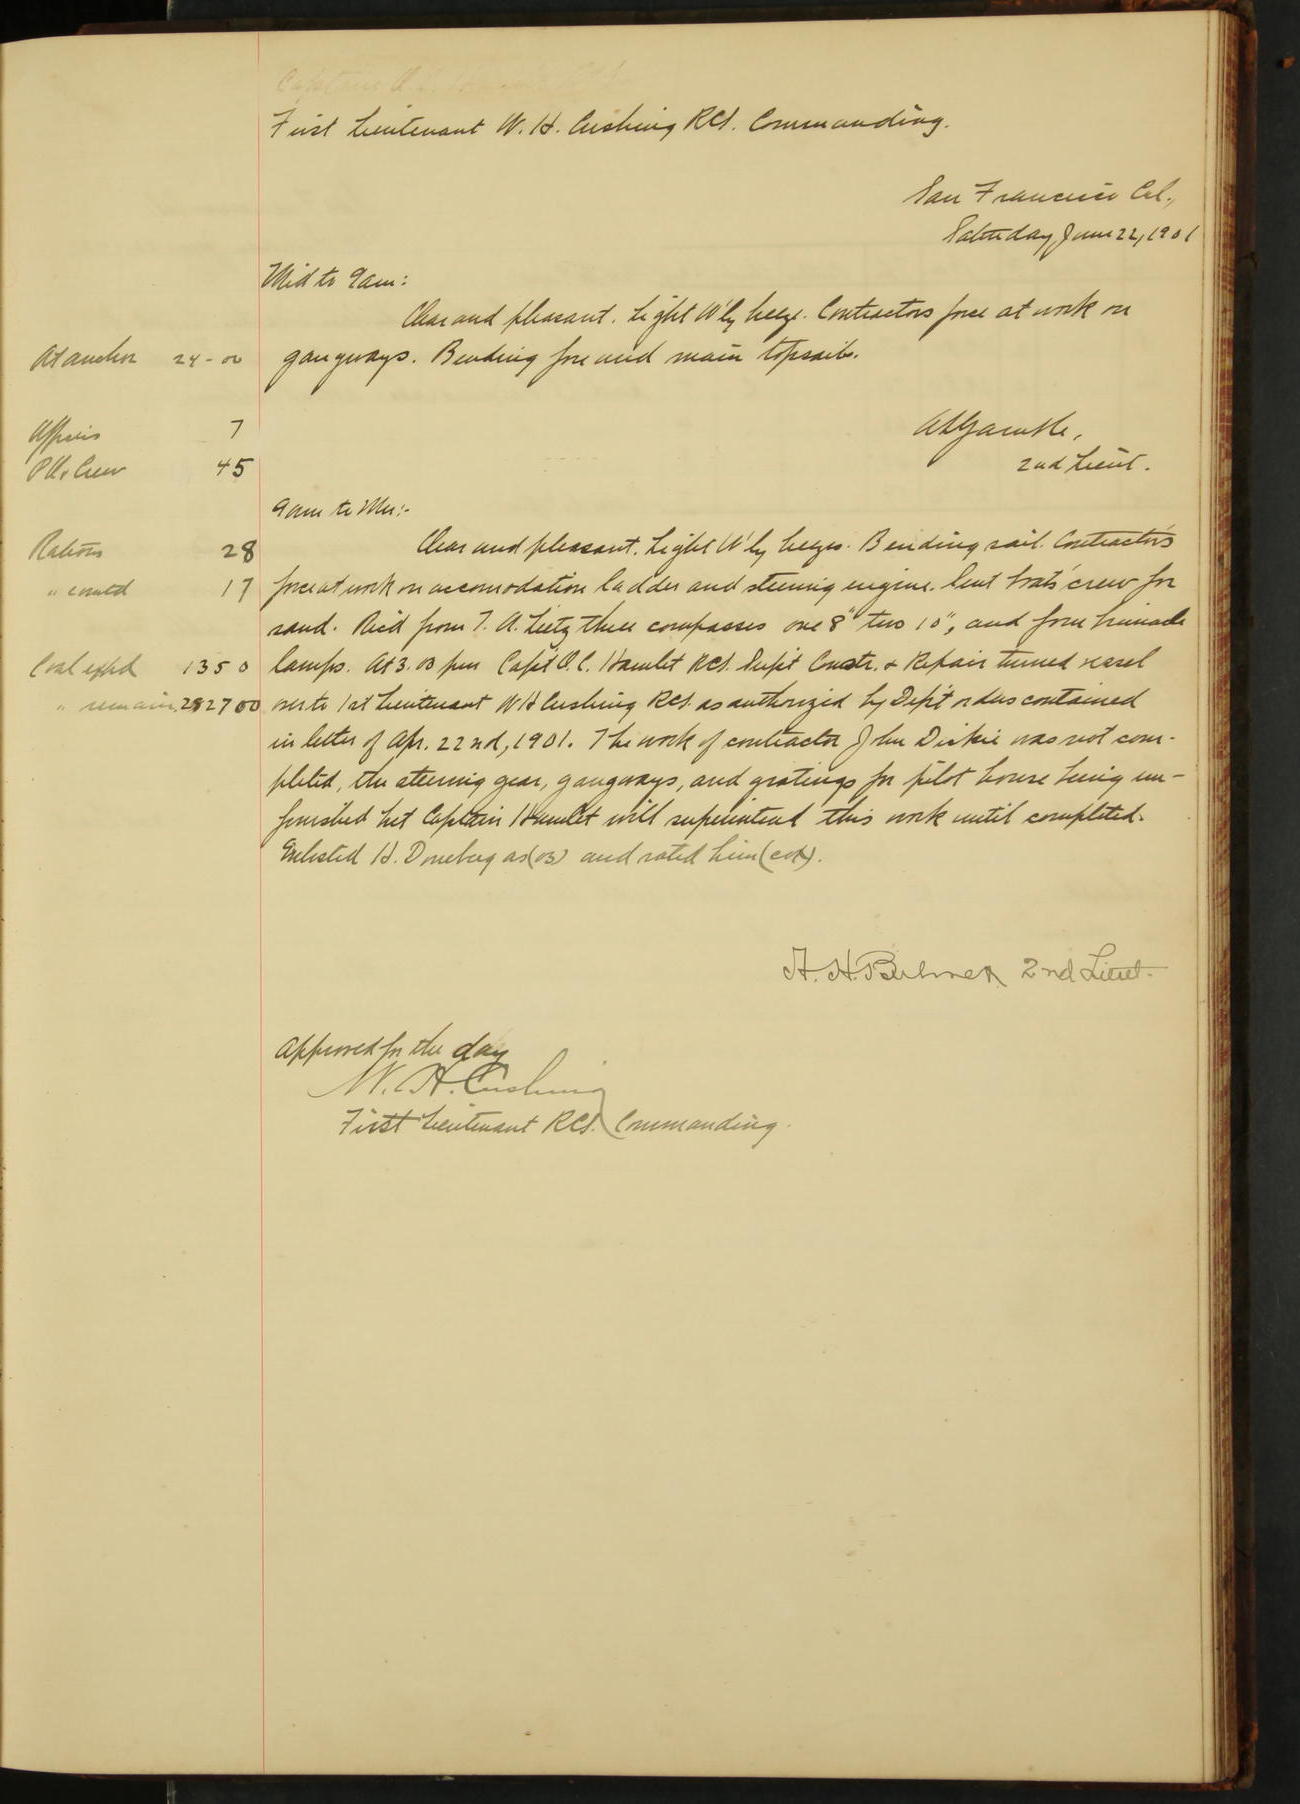 First Lieutenant W. H. Cushing RCS. Commanding.
San Francisco Cal.,
Saturday, June 22, 1901
Mid to 9am:
Clear and pleasant. Light W'ly breeze. Contractors force at work on
At anchor 24-00 gangways. Bending fore and main topsails.
Officers 7
2nd Lieut.
P.O. & Crew 45
9am to Mn:-
Rations 28 Clear and pleasant. Light W'ly breezes. Bending sail. Contractor's
" comtd 17 force at work on accomodation ladder and steering engine. Sent boats' crew for
sand. Rec'd from T. A. Lietz three compasses one 8" two 10", and four binnacle
Coal expd 1350 lamps. At 3.00 pm Capt O.C. Hamlet RCS. Sup't Constr. & Repair turned vessel
" remain. 282700 over to 1st Lieutenant W H Cushing RCS. as authorized by Dep't orders contained
in letter of Apr. 22nd, 1901. The work of contractor John Dickie was not com-
pleted, the steering gear, gangways, and gratings for pilot house being un-
finished but Captain Hamlet will superintend this work until completed.
Enlisted H. Doneberg as (os) and rated him (cox).
2nd Lieut.
Approved for the day
W. H. Cushing
First Lieutenant RCS. Commanding.